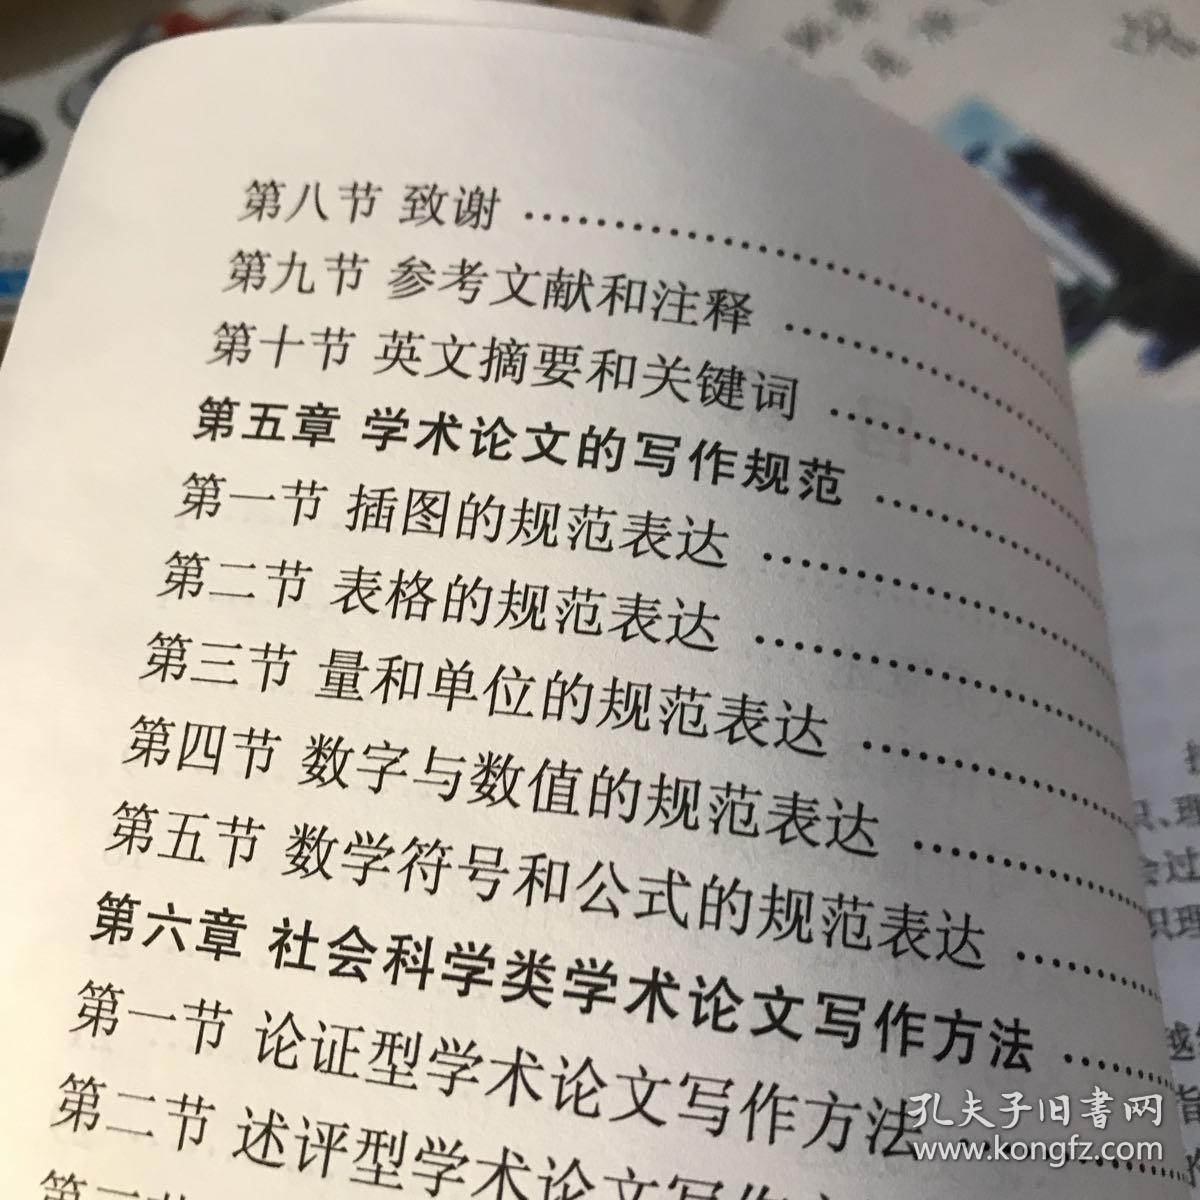 第八节 致谢 ……………………
第九节 参考文献和注释 ……………………
第十节 英文摘要和关键词 ……………………
第五章 学术论文的写作规范 ……………………
第一节 插图的规范表达 ……………………
第二节 表格的规范表达 ……………………
第三节 量和单位的规范表达 ……………………
第四节 数字与数值的规范表达 ……………………
第五节 数学符号和公式的规范表达 ……………………
第六章 社会科学类学术论文写作方法 ……………………
第一节 论证型学术论文写作方法 ……………………
第二节 述评型学术论文写作方
识、理
会过
识理
越
指
孔夫子旧书网
www.kongfz.com